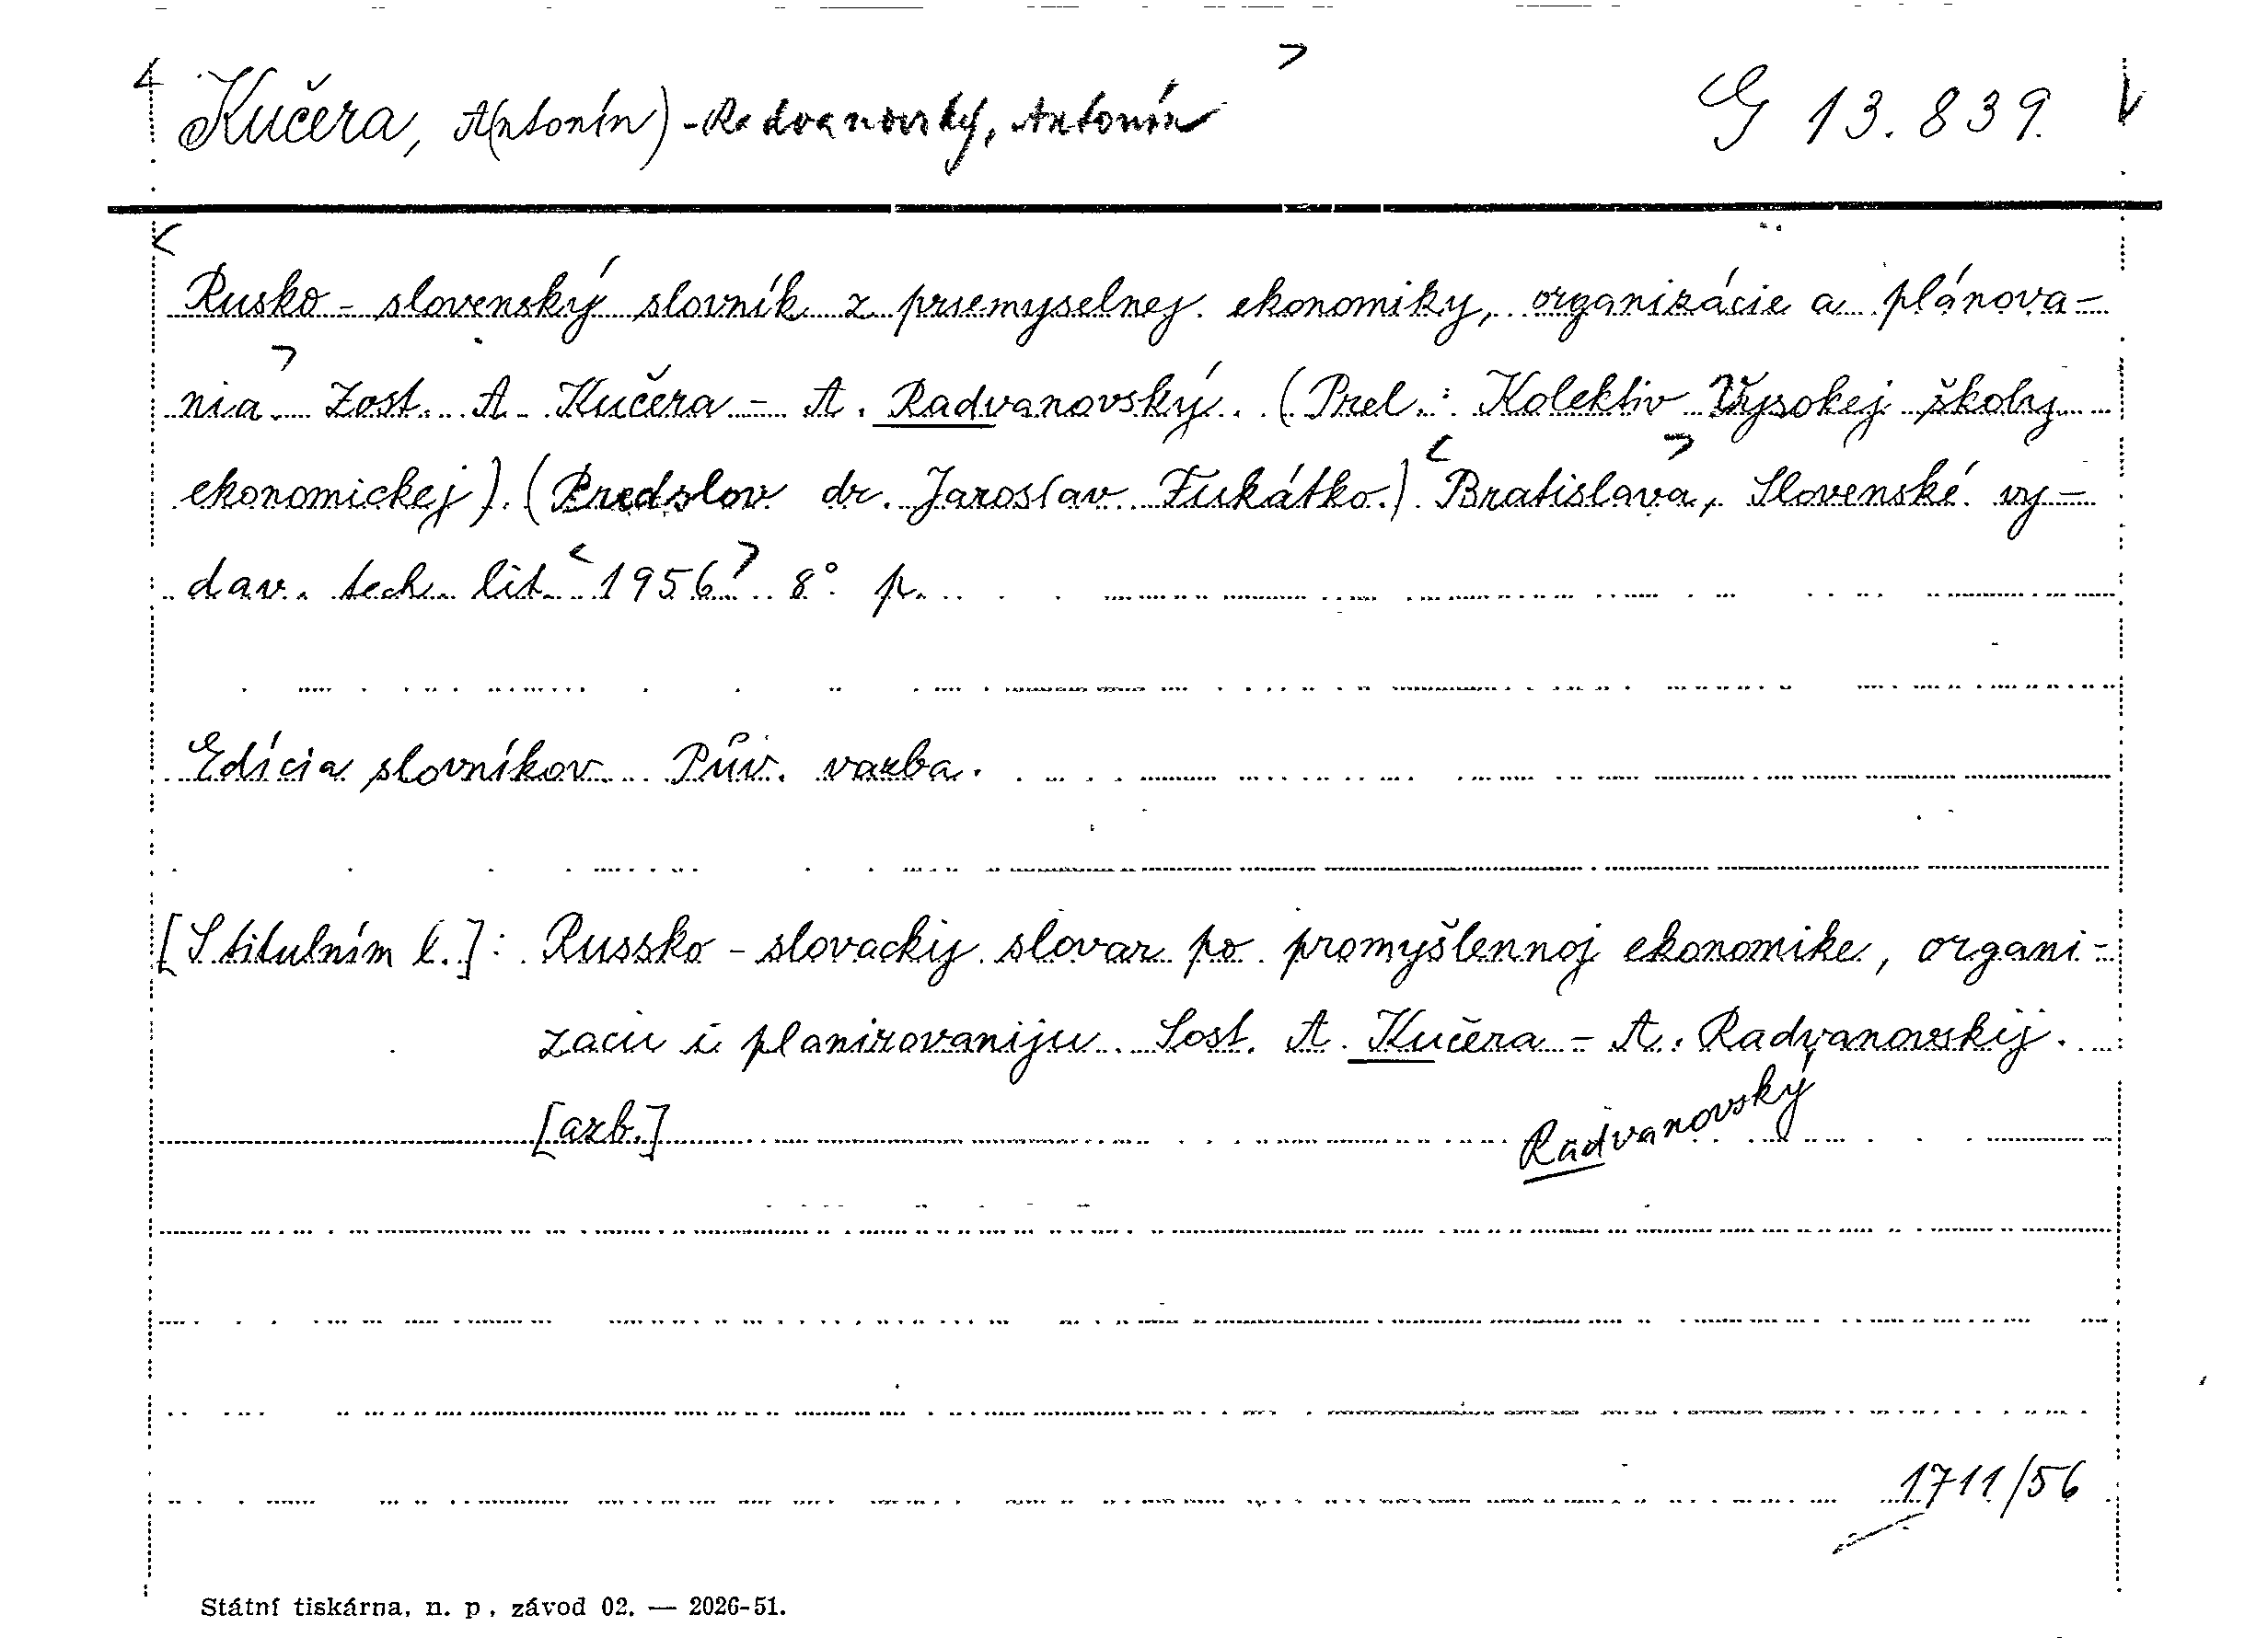 Kučera, A(ntonín) - Radvanovský, Antonín G 13.839.
Rusko - slovenský slovník z priemyselnej ekonomiky, organizácie a plánova-
nia. Zost. A. Kučera - A. Radvanovský. (Prel.: Kolektiv Vysokej školy
ekonomickej). (Predslov dr. Jaroslav Fukátko.) Bratislava, Slovenské vy-
dav. tech. lit. 1956. 8° p.
Edícia slovníkov. Pův. vazba.
[S titulním l.]: Russko - slovackij slovar po promyšlennoj ekonomike, organi-
zacii i planirovaniju. Sost. A. Kučera - A. Radvanovskij.
[azb.]
Radvanovský
1711/56
Státní tiskárna, n. p., závod 02. — 2026-51.